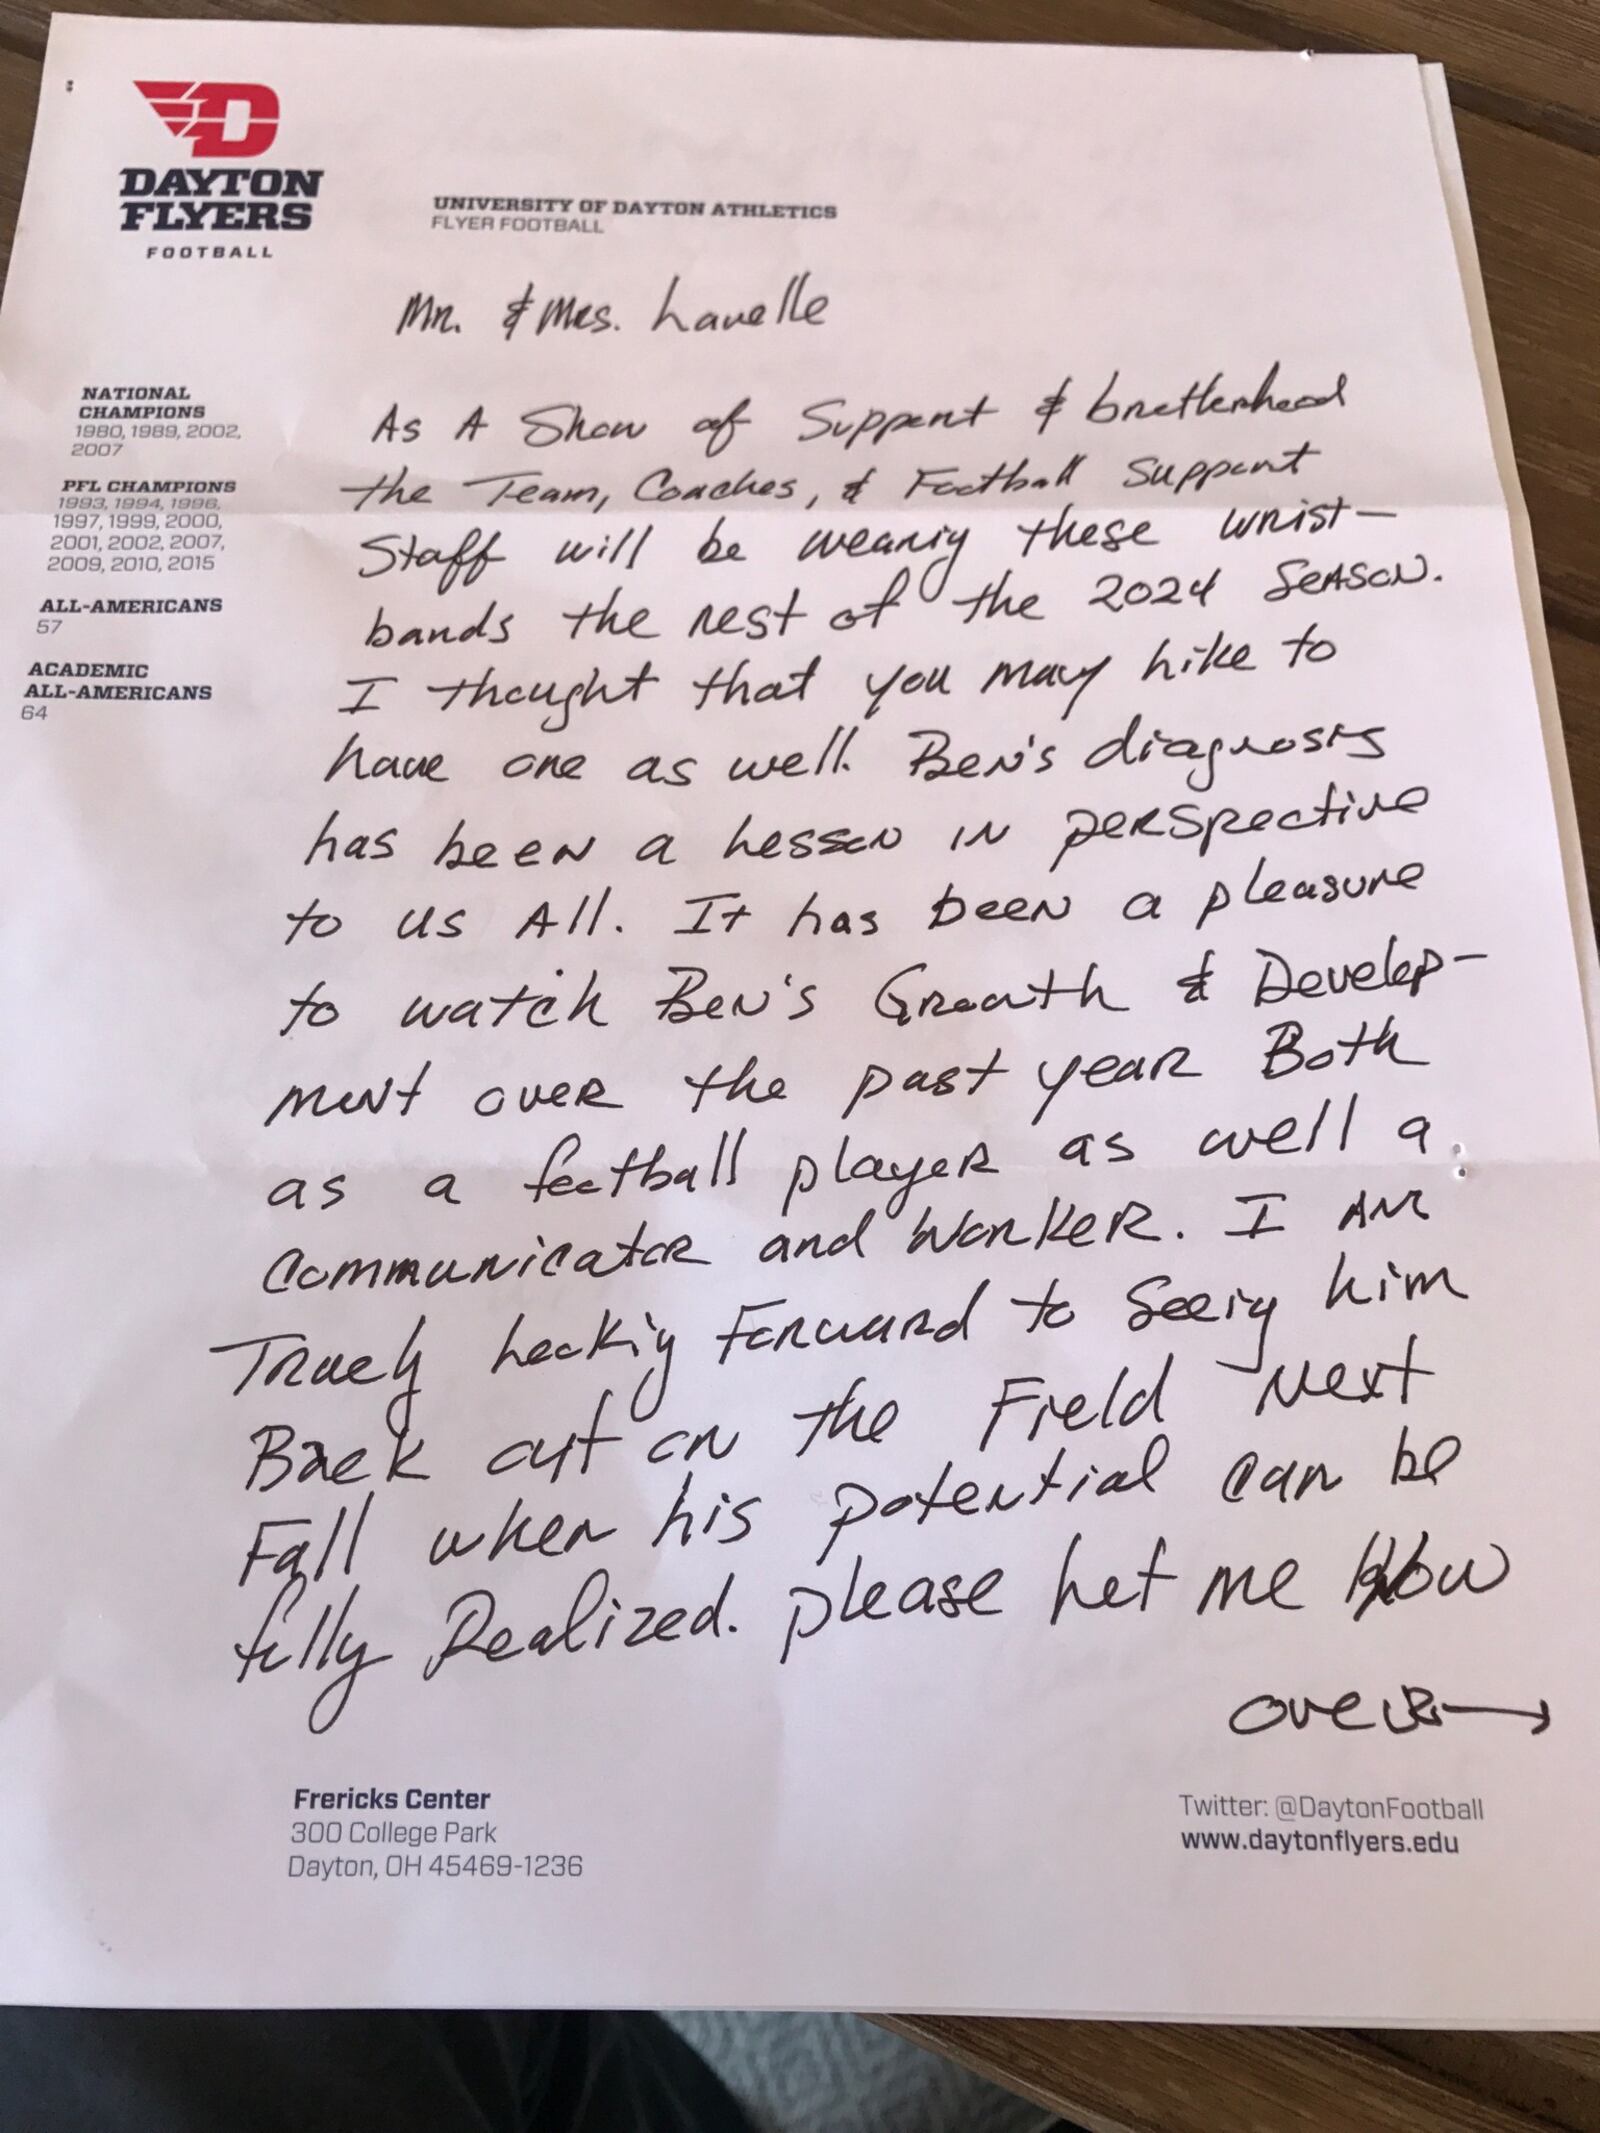 DAYTON
FLYERS
FOOTBALL
UNIVERSITY OF DAYTON ATHLETICS
FLYER FOOTBALL
Mr. & Mrs. Lavelle
NATIONAL
CHAMPIONS
1980, 1989, 2002,
2007
PFL CHAMPIONS
1993, 1994, 1996,
1997, 1999, 2000,
2001, 2002, 2007,
2009, 2010, 2015
ALL-AMERICANS
57
ACADEMIC
ALL-AMERICANS
64
As A Show of Support & brotherhood
the Team, Coaches, & Football Support
Staff will be wearing these wrist-
bands the rest of the 2024 Season.
I thought that you may Like to
have one as well. Ben's diagnosis
has been a Lesson in perspective
to us All. It has been a pleasure
to watch Ben's Growth & Develop-
ment over the past year Both
as a football player as well a
communicator and Worker. I am
Truely Looking Forward to Seeing him
Back out on the Field Next
Fall when his potential can be
fully Realized. please Let me know
over →
Frericks Center
300 College Park
Dayton, OH 45469-1236
Twitter: @DaytonFootball
www.daytonflyers.edu